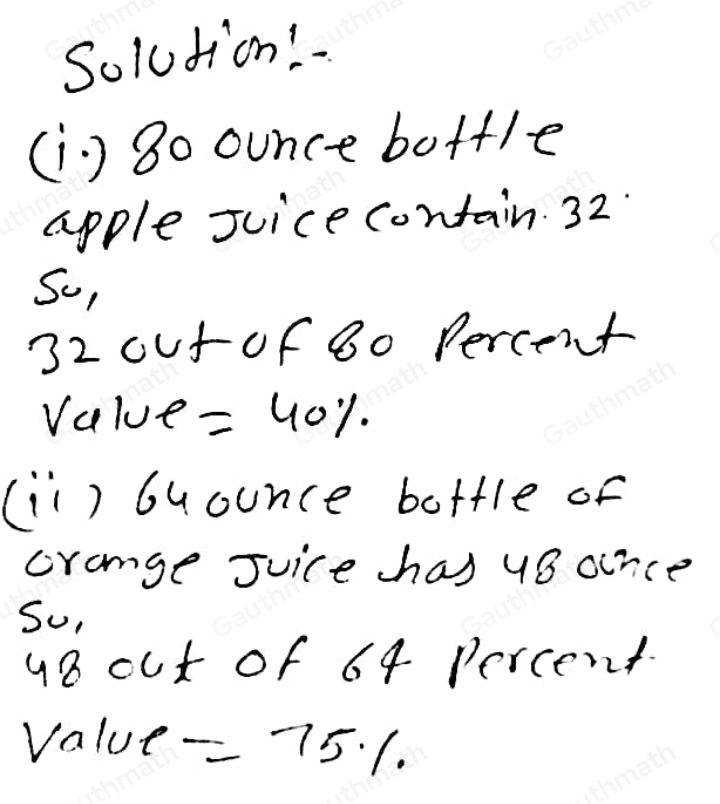 Solution:-
(i.) 80 ounce bottle
apple Juice contain. 32
So,
32 out of 80 Percent
Value = 40%.
(ii) 64 ounce bottle of
orange Juice has 48 ounce
So,
48 out of 64 Percent
Value = 75%.